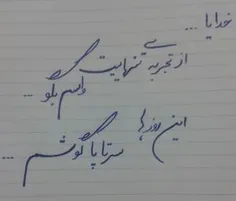 خدایا ...
از تجربه ی تنهاییت
واسم بگو
این روزها
سرتاپا گوشم ...